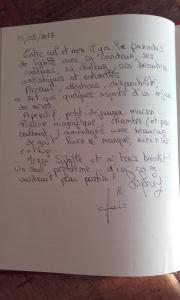 11/08/2017
Entre ciel et mer il y a le paradis
de Sybille avec sa candeur, ses
couleurs, sa chaleur, ses beautés
artistiques et naturelles
Accueil, attentions, disponibilité
ne sont que quelques aspects d'un séjour
de rêves
Apéritif, petit déjeuner maison
Piscine magnifique, chambre (et pas
seulement) aménagée avec beaucoup
de goût. Rien ne manque, rien n'est
en trop
Merci Sybille et à très bientôt!
Un seul problème
voudrait plus partir!